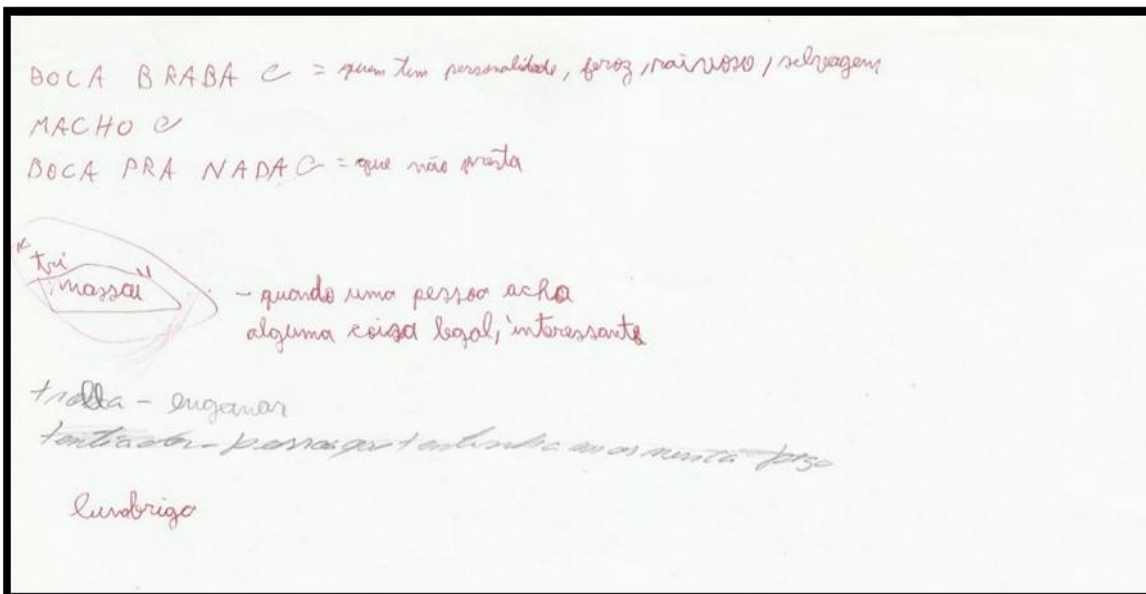 BOCA BRABA C = quem tem personalidade, feroz, raivoso, selvagem
MACHO C
BOCA PRA NADA C = que não presta
"tri
massa"
- quando uma pessoa acha
alguma coisa legal, interessante
trolla - enganar
lumbriga